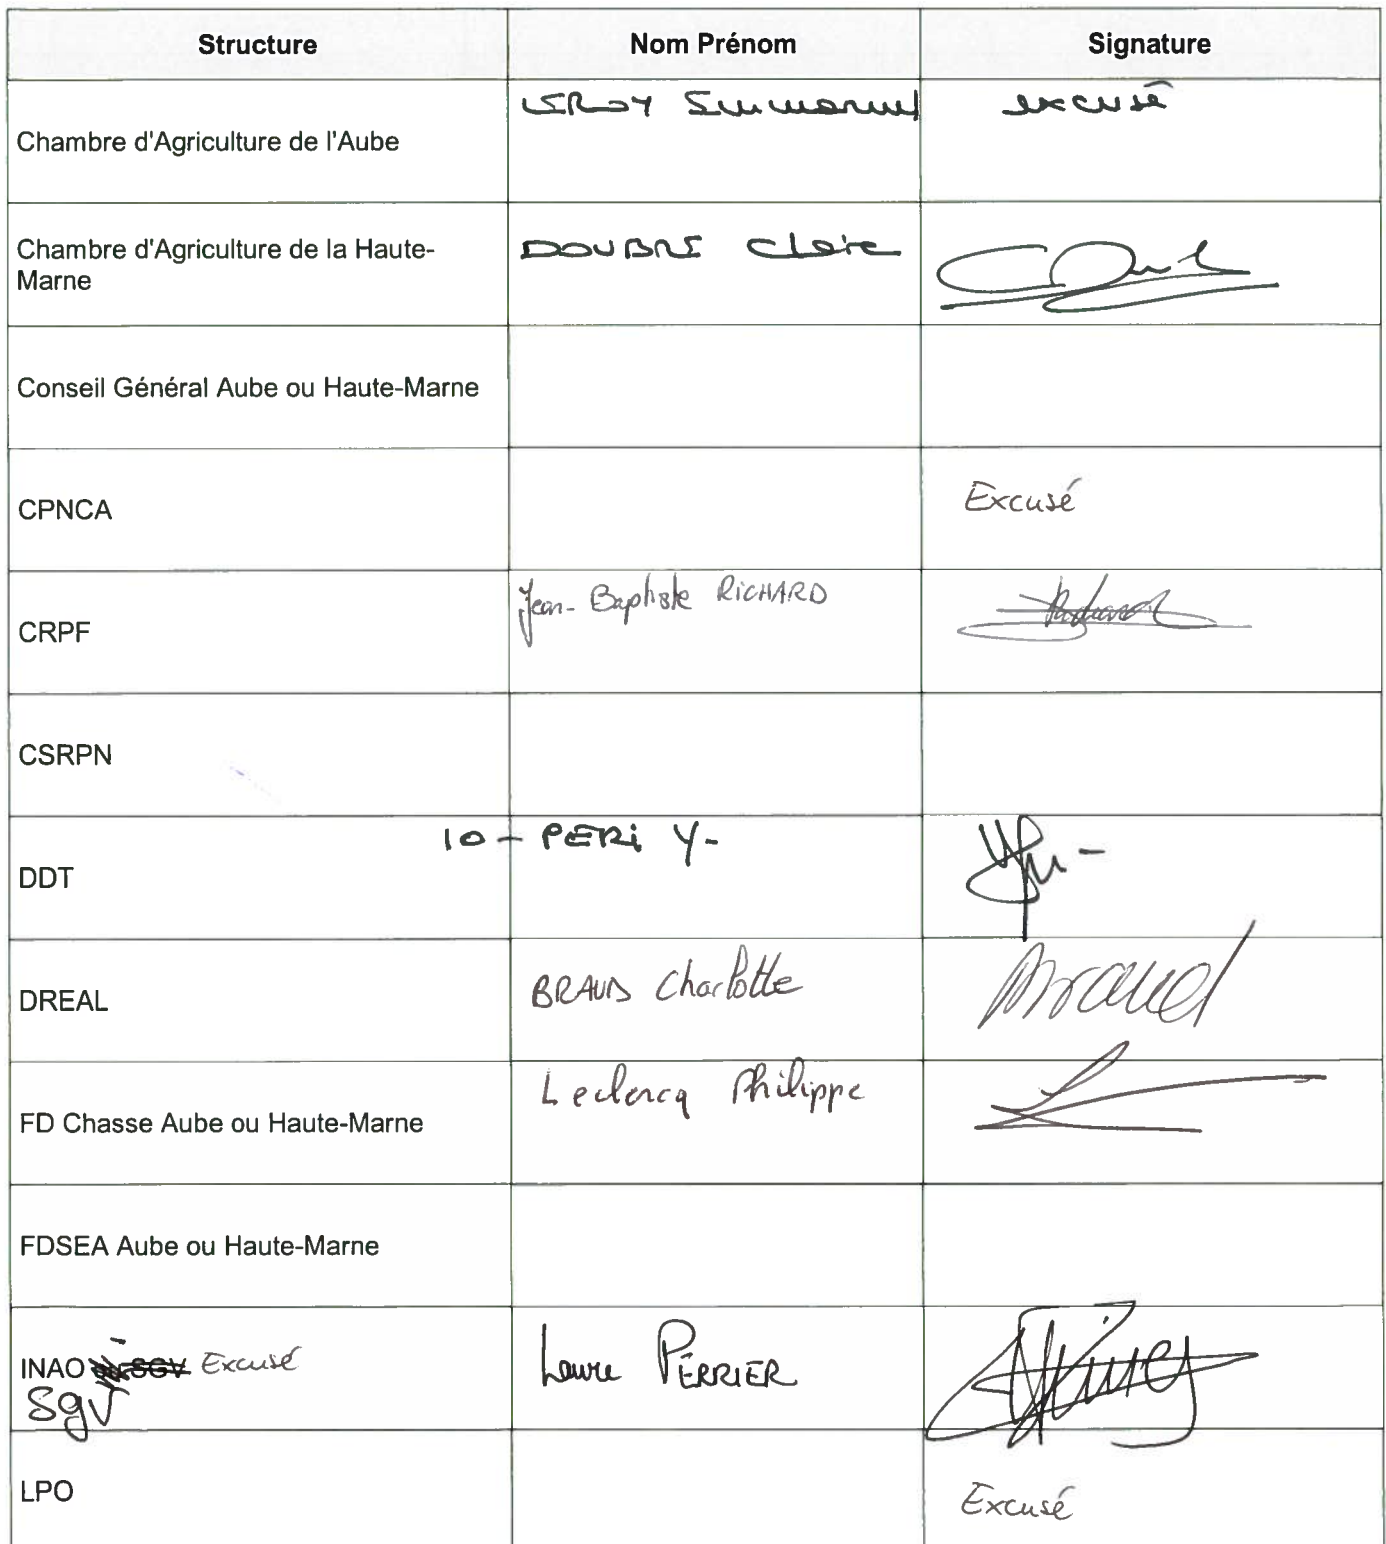 Structure Nom Prénom Signature
Chambre d'Agriculture de l'Aube LEROY Emmanuel excusé
Chambre d'Agriculture de la Haute-
Marne DOUBRE Claire
Conseil Général Aube ou Haute-Marne
CPNCA Excusé
CRPF Jean-Baptiste RICHARD
CSRPN
DDT 10 - PERI Y-
DREAL BRAUD Charlotte Braud
FD Chasse Aube ou Haute-Marne Leclercq Philippe
FDSEA Aube ou Haute-Marne
INAO ou SGV Excusé Laure PERRIER
SGV
LPO Excusé